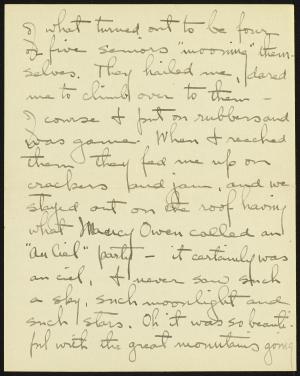 & what turned out to be four
or five seniors "mooning" them-
selves. They hailed me, & dared
me to climb over to them –
Of course I put on rubbers and
was game. When I reached
them they fed me up on
crackers and jam, and we
stayed out on the roof having
what Marcy Owen called an
"au ciel" party – it certainly was
au ciel, & I never saw such
a sky, such moonlight and
such stars. Oh it was so beauti-
ful with the great mountains going